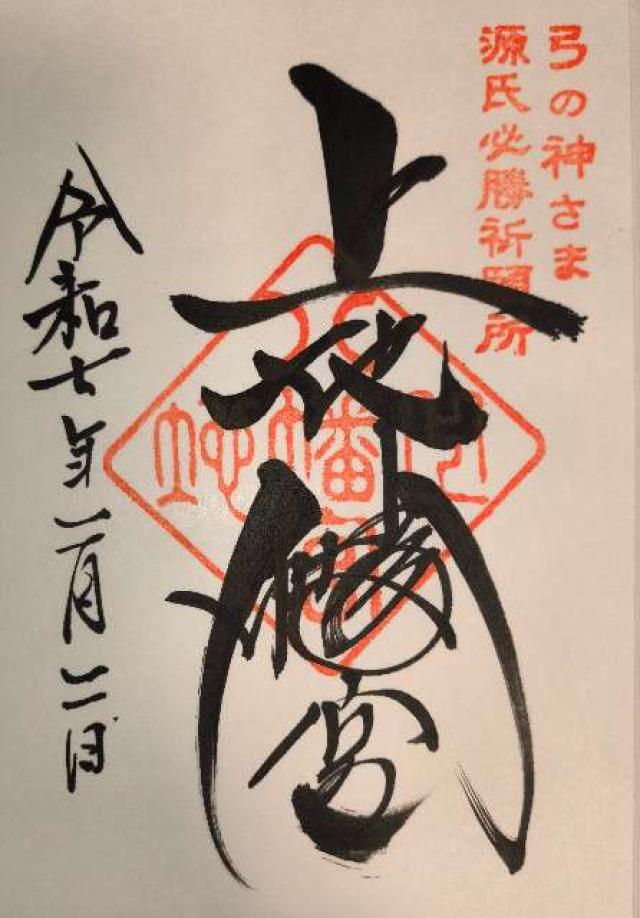 弓の神さま
源氏必勝祈願所
上地八幡宮
令和七年二月二日